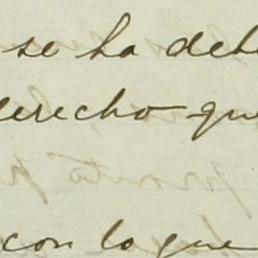 se ha deb
derecho que
con lo que